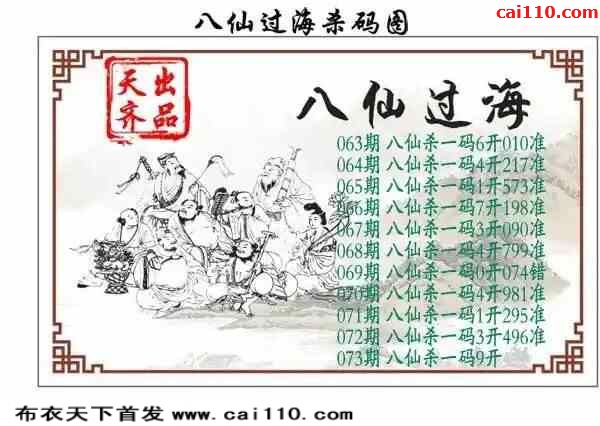 八仙过海杀码图
cai110.com
天齐
出品
八仙过海
063期 八仙杀一码6开010准
064期 八仙杀一码4开217准
065期 八仙杀一码1开573准
066期 八仙杀一码7开198准
067期 八仙杀一码3开090准
068期 八仙杀一码4开799准
069期 八仙杀一码0开074错
070期 八仙杀一码4开981准
071期 八仙杀一码1开295准
072期 八仙杀一码3开496准
073期 八仙杀一码9开
布衣天下首发 www.cai110.com